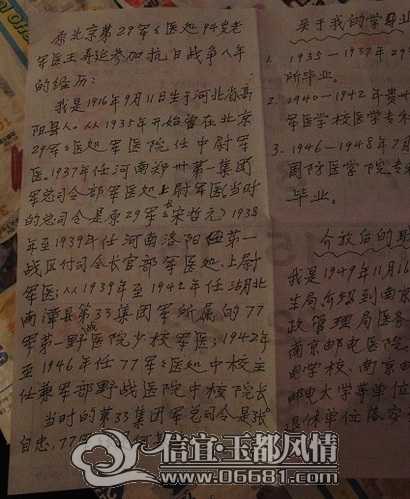 原北京第29军军医处94岁老
军医王寿延参加抗日战争八年
的经历:
我是1916年9月11日生于河北省高
阳县人。从1935年开始曾在北京
29军军医处军医院任中尉军
医。1937年任河南郑卅第一集团
军总司令部军医处上尉军医(当时
的总司令是原29军长宋哲元)1938
年至1939年任河南洛阳第一
战区付司令长官部军医处上尉
军医;从1939年至1942年任湖北
南漳县第33集团军所属的77
军第一野战医院少校军医;1942年
至1946年任77军军医处中校主
任兼军部野战医院中校院长
当时的第33集团军总司令是张
自忠,77
关于我的学
1. 1935-1937年29
所毕业。
2. 1940-1942年贵
军医学校医学专
3. 1946-1948年
国防医学院专
毕业。
介放后的
我是1949年11月
生局介绍到南京
政管理局医务
南京邮电医院
电学校、南京邮
邮电大学等单位
退休单位
信宜·玉都风情
www.06681.com